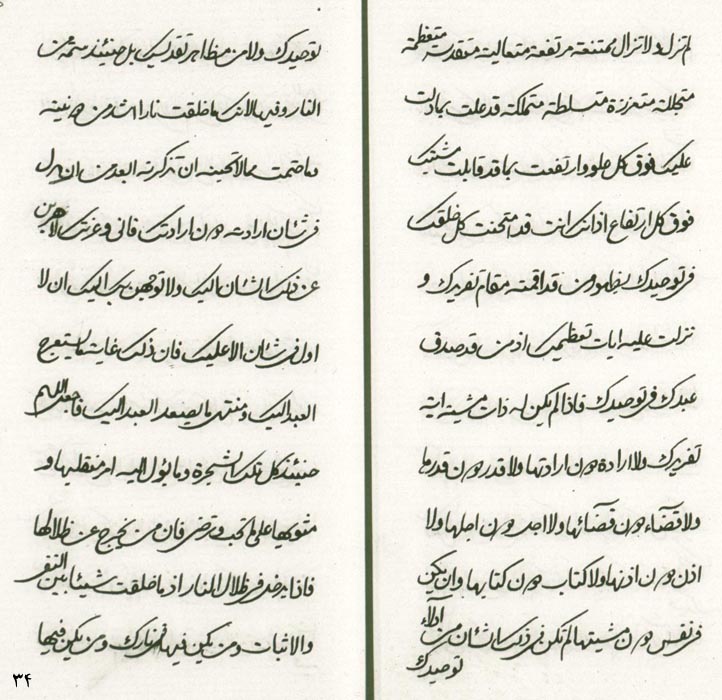 لم تزل ولا تزال ممتنعة مرتفعة متعالية متقدسة متعظمة
متجللة متعززة متسلطة متملكة قد علت بما دلت
عليك فوق كل علو وارتفعت بما قد قابلت مشيتك
فوق كل ارتفاع اذ انك انت قد امتحنت كل خلقك
في توحيدك بظهور من قد اقمته مقام تفريدك و
نزلت عليه ايات تعظيمك اذ من قد صدق
عبدك في توحيدك فاذا لم يكن له ذات مشية اية
تفريدك ولا ارادة دون ارادتها ولا قدر دون قدرها
ولا قضاء دون قضائها ولا اجل دون اجلها ولا
اذن دون اذنها ولا كتاب دون كتابها وان يكن
في نفس دون مشيتها لم تكن في ذلك الشان من ادلاء
توحيدك
توحيدك ولا من مظاهر تقديسك بل حينئذ سمته من
النار وفيها لانك ما خلقت نارا اشد من دونيته
ان تذكرنه العبد من ان يدل
في شان ارادته دون ارادتك فاني وعزتك لاهربن
عن ذلك الشان اليك ولا توجهن بك اليك ان لا
اول في شان الا عليك فان ذلك غاية ما يستعرج
العبد اليك ومنتهى ما يصعد العبد اليك فاجعل اللهم
حينئذ كل تلك الشجرة وما يؤل اليه امر منقلبها و
مثويها على ما تحب وترضى فان من يخرج عن ظلالها
فاذا يدخل في ظلال النار اذ ما خلقت شيئا بين النفي
والاثبات ومن يكن فيها فهي نارك ومن يكن فيها
٣٤